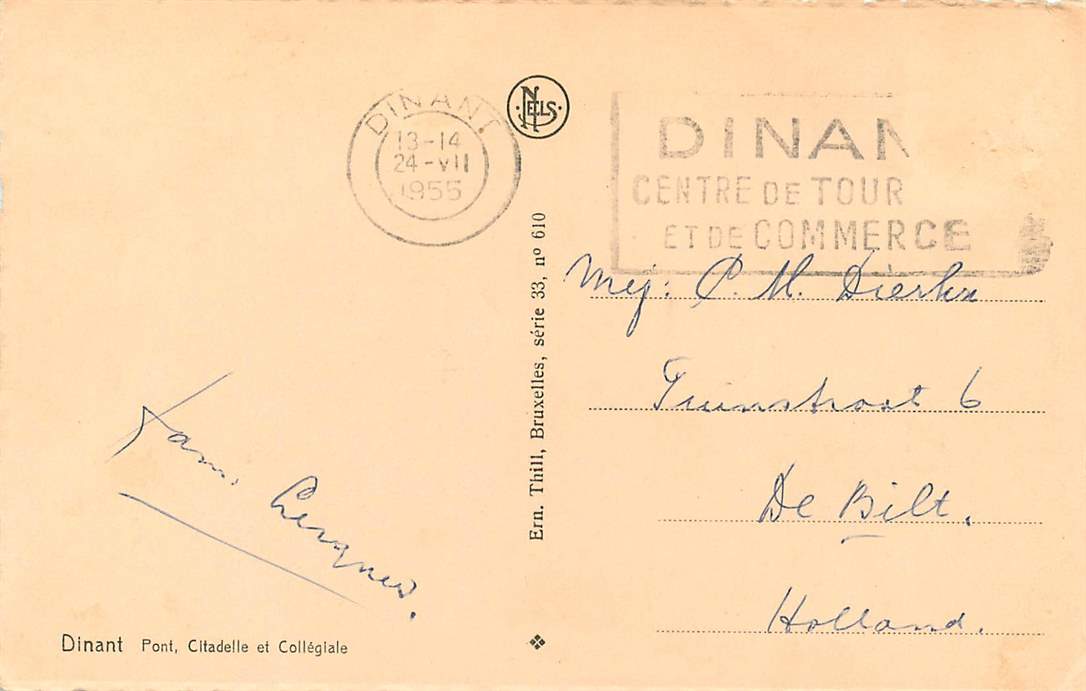 DINANT
13-14
24-VII
1955
NELS
DINAN
CENTRE DE TOUR
ET DE COMMERCE
Ern. Thill, Bruxelles, série 33, nº 610
Mej: C. M.
6
De Bilt.
Holland.
Fam.
Dinant Pont, Citadelle et Collégiale